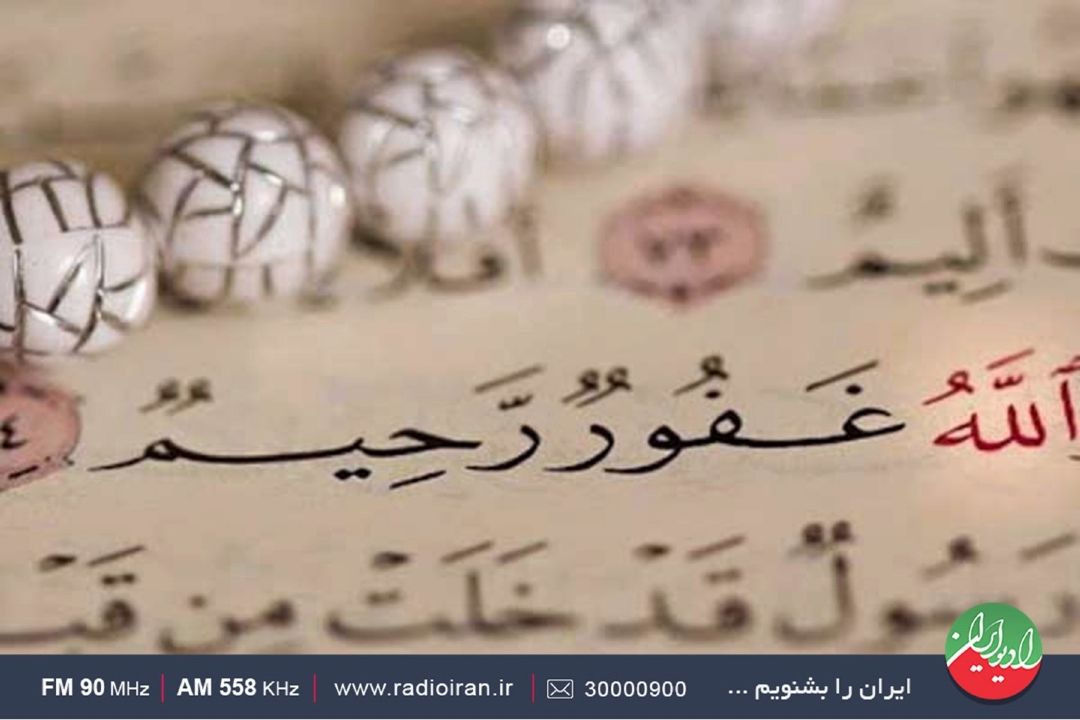 أَلِيمٌ ٧٣
ٱللَّهُ غَفُورٌ رَّحِيمٌ ٤
رَسُولٌ قَدْ خَلَتْ مِن قَبْ
FM 90 MHz | AM 558 KHz | www.radioiran.ir | 30000900 ایران را بشنویم ...
رادیو ایران